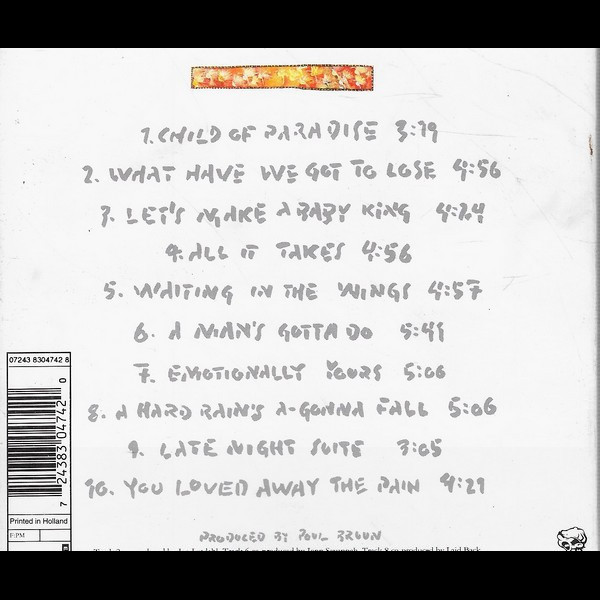 1. CHILD OF PARADISE 3:19
2. WHAT HAVE WE GOT TO LOSE 4:56
3. LET'S MAKE A BABY KING 4:24
4. ALL IT TAKES 4:56
5. WAITING IN THE WINGS 4:57
6. A MAN'S GOTTA DO 5:41
7. EMOTIONALLY YOURS 5:06
07243 8304742 8
8. A HARD RAIN'S A-GONNA FALL 5:06
9. LATE NIGHT SUITE 3:05
10. YOU LOVED AWAY THE PAIN 4:29
7 24383 04742 0
Printed in Holland
F:PM
PRODUCED BY POUL BRUUN